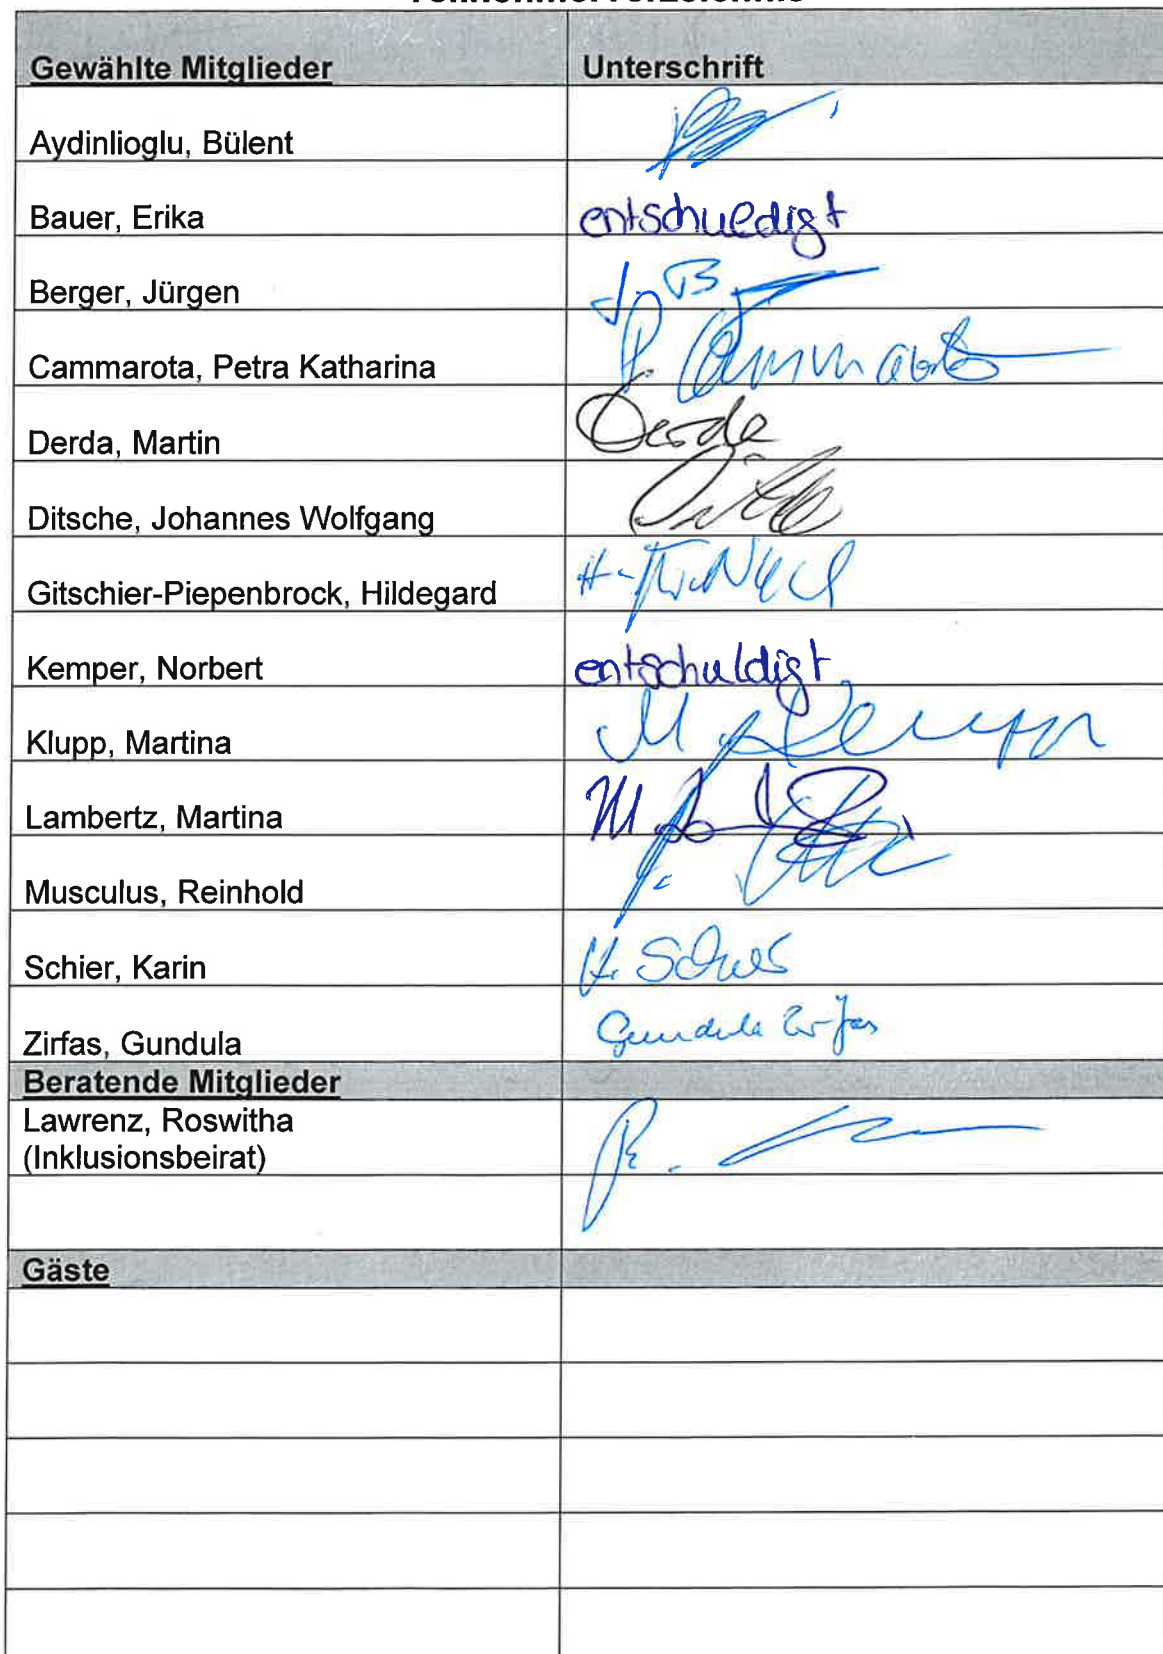 Teilnehmerverzeichnis
Gewählte Mitglieder Unterschrift
Aydinlioglu, Bülent
Bauer, Erika entschuldigt
Berger, Jürgen J. B
Cammarota, Petra Katharina P. Cammarota
Derda, Martin Derda
Ditsche, Johannes Wolfgang
Gitschier-Piepenbrock, Hildegard
Kemper, Norbert entschuldigt
Klupp, Martina M. Klupp
Lambertz, Martina
Musculus, Reinhold
Schier, Karin K. Schier
Zirfas, Gundula Gundula Zirfas
Beratende Mitglieder
Lawrenz, Roswitha
(Inklusionsbeirat)
Gäste